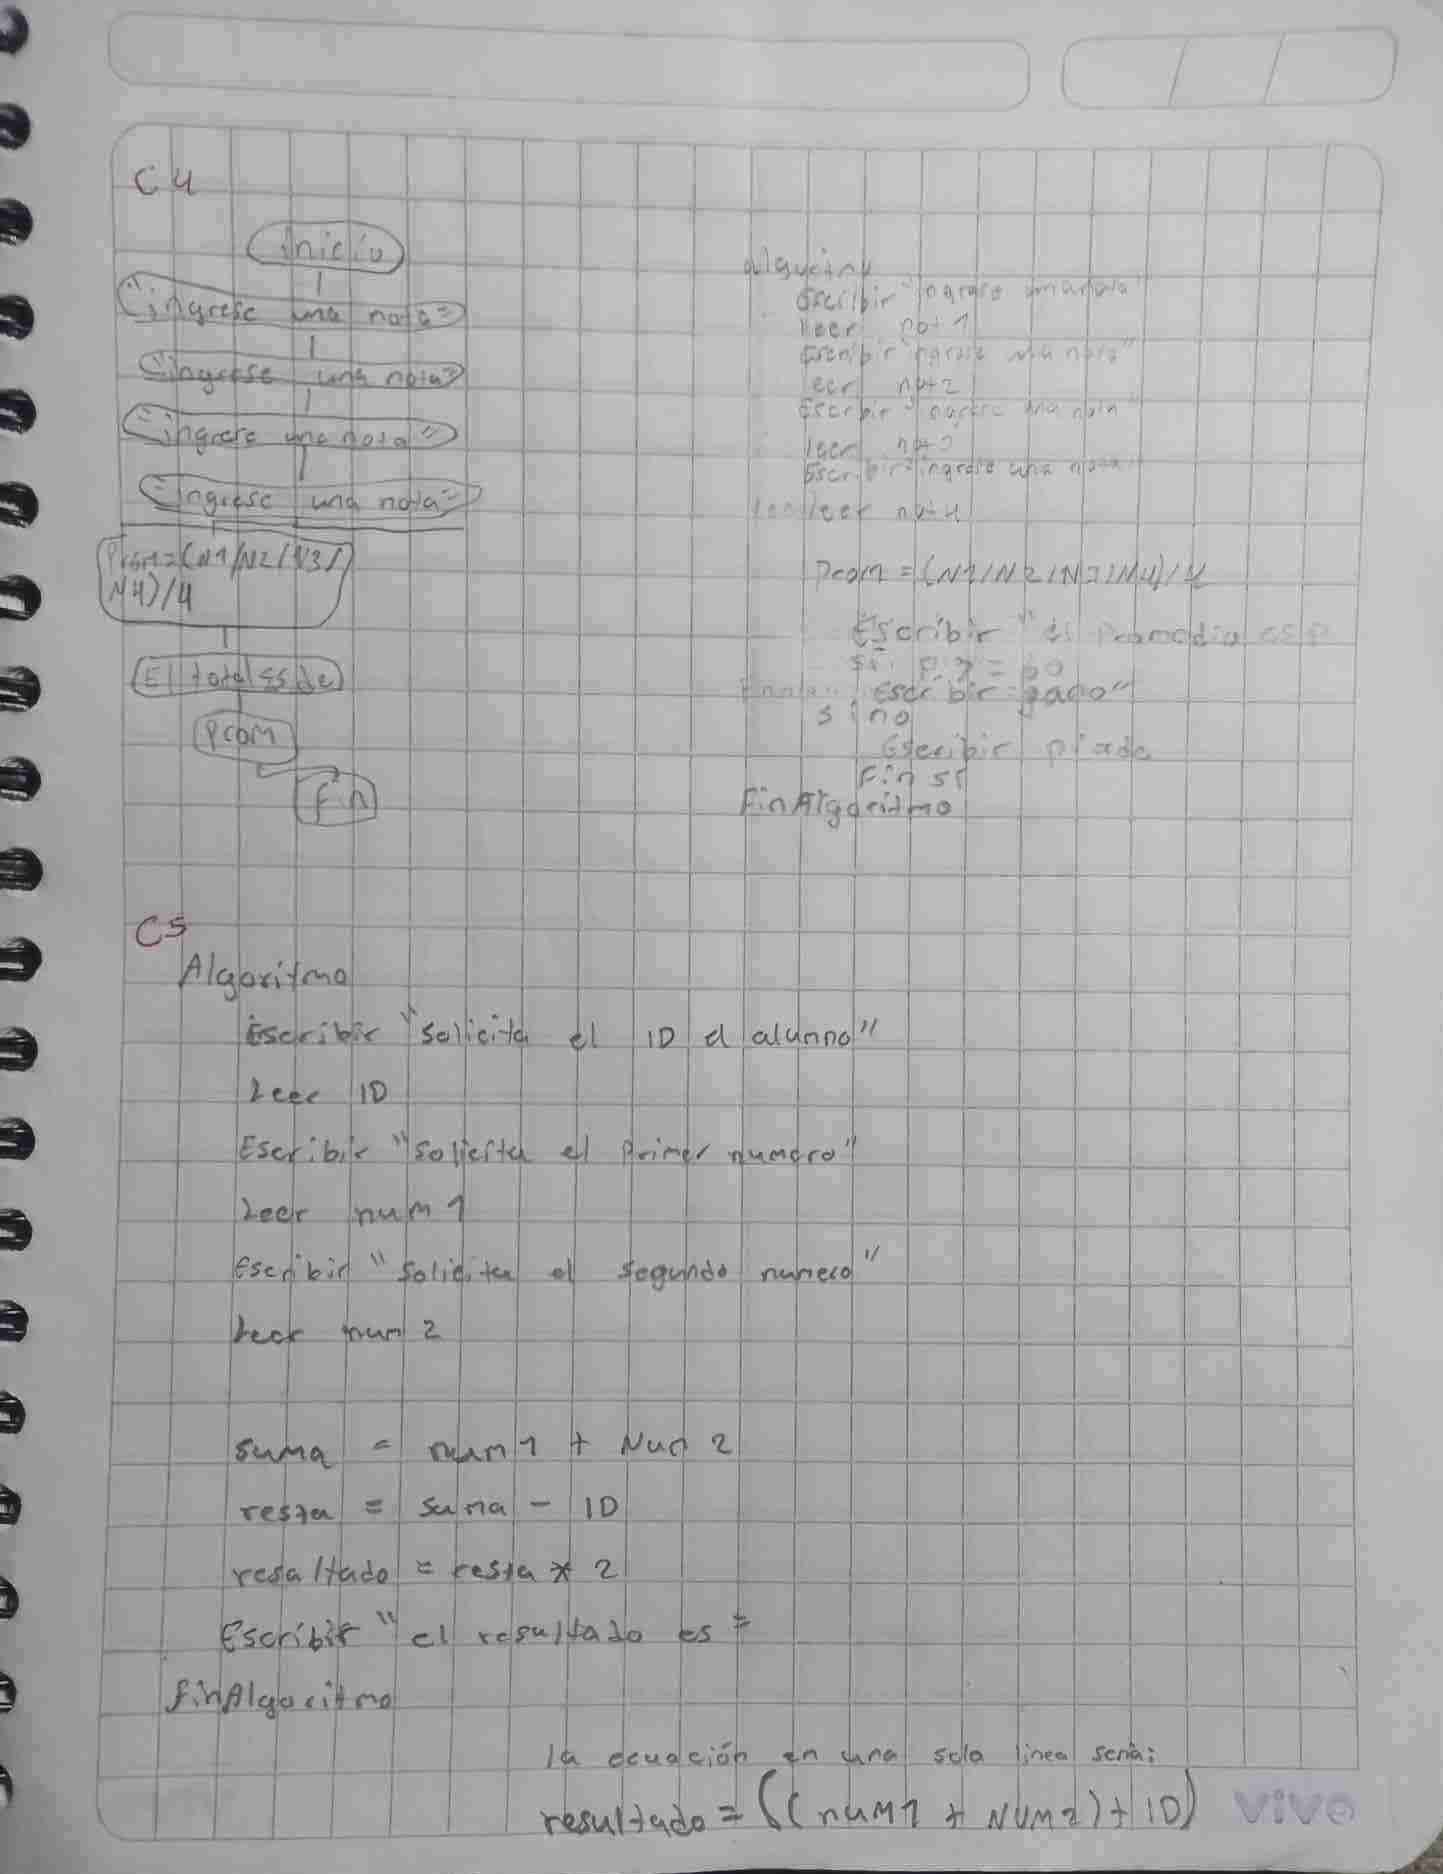 C4
inicio
"ingrese una nota"
"ingrese una nota"
"ingrese una nota"
"ingrese una nota"
Prom=(N1/N2/N3/
N4)/4
El total es de
Prom
Fin
Escribir "ingrese una nota"
leer not 1
Escribir "ingrese una nota"
leer not 2
Escribir "ingrese una nota"
leer not 3
Escribir "ingrese una nota"
leer not 4
Prom = (N1/N2/N3/N4)/4
Escribir "el Promedio es P
si P >= 60
Escribir gado"
sino
Escribir
Fin si
FinAlgoritmo
C5
Algoritmo
Escribir "Solicita el ID d alunno"
Leer ID
Escribir "Solicita el Primer numero"
Leer num 1
Escribir "Solicita el segundo numero"
Leer num 2
suma = num 1 + Num 2
resta = suma - ID
resultado = resta * 2
Escribir "el resultado es "
finAlgoritmo
la ecuación en una sola linea seria:
resultado = ((num1 + NUM2) + ID)
vivo